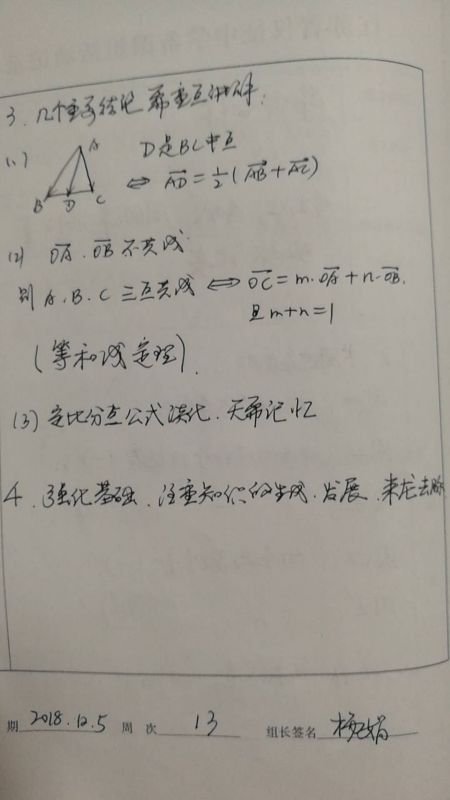 3、几个重要结论需重点讲解:
(1)
A
B D C
D是BC中点
⇔ AD = ½(AB + AC)
(2) OA、OB不共线
则A、B、C三点共线 ⇔ OC = m·OA + n·OB.
且m+n=1
(等和线定理).
(3) 定比分点公式淡化、无需记忆
4、强化基础、注重知识的生成、发展、来龙去脉
期 2018.12.5 周 次 13 组长签名 杨